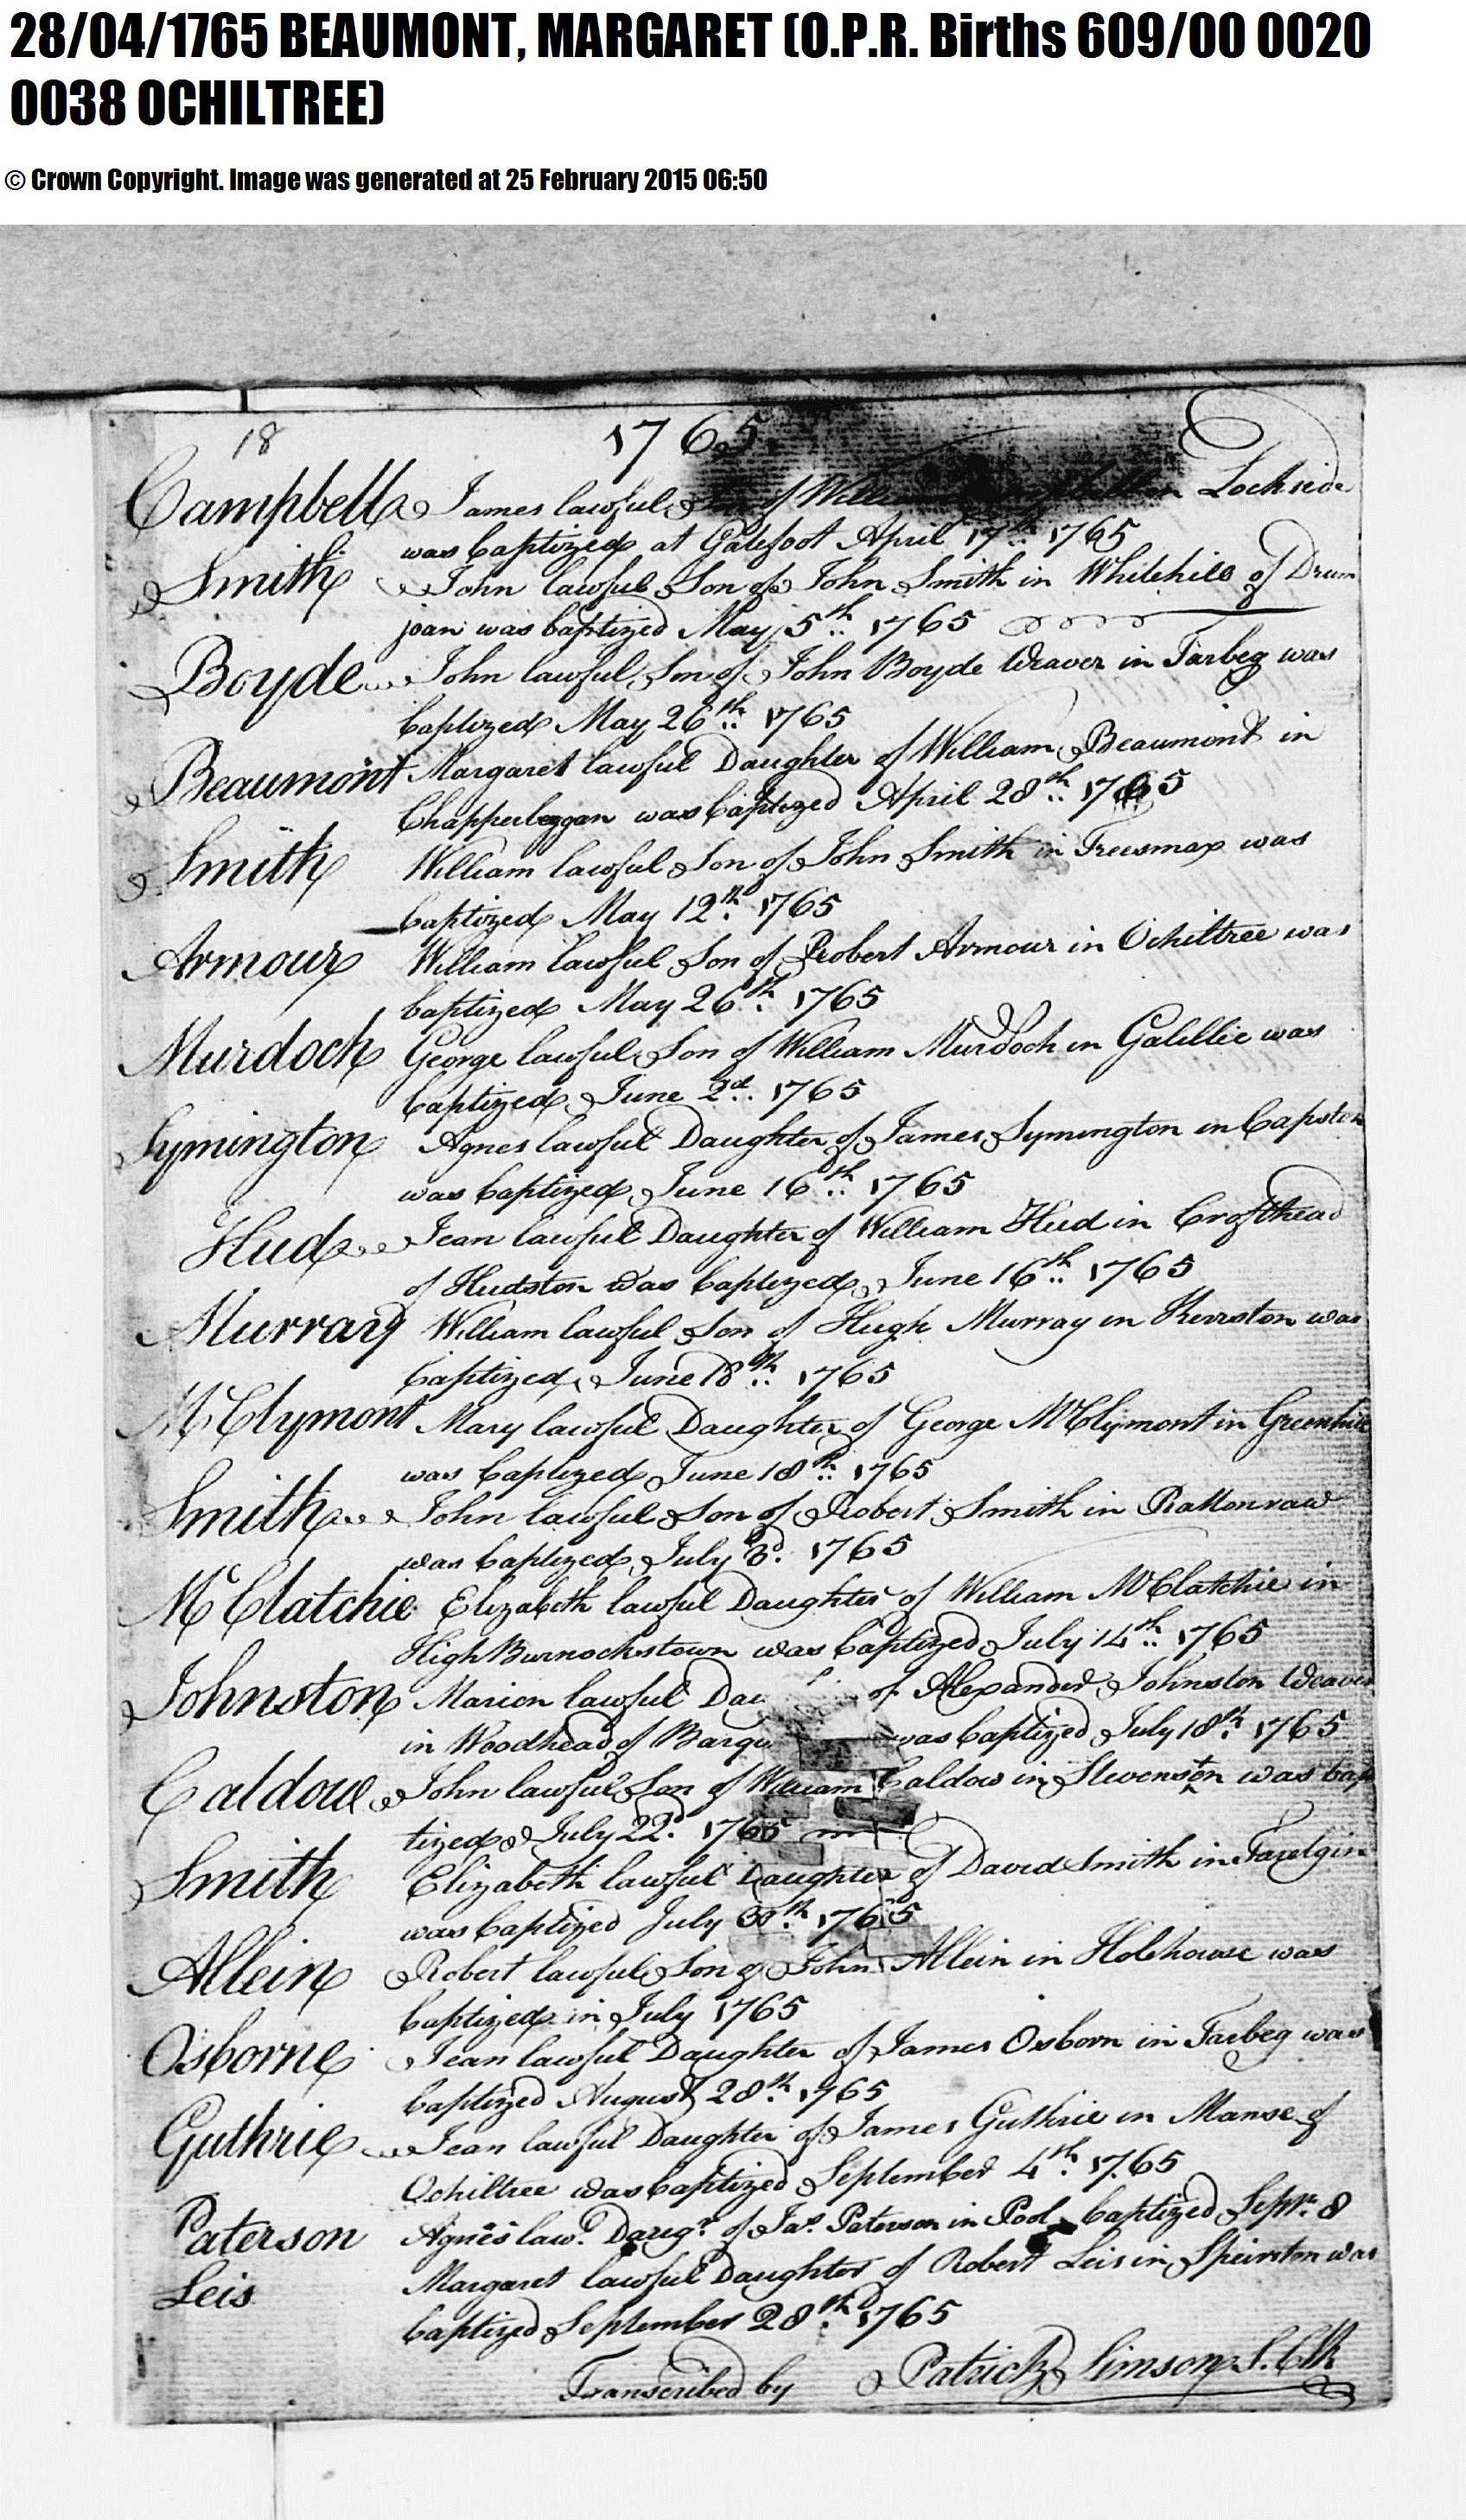 28/04/1765 BEAUMONT, MARGARET (O.P.R. Births 609/00 0020
0038 OCHILTREE)
© Crown Copyright. Image was generated at 25 February 2015 06:50
18
1765
Campbell James lawful Son of William Lochside
was baptized at Gatefoot April 17th 1765
Smith John lawful Son of John Smith in Whitehill of Drum
joan was baptized May 5th 1765
Boyde John lawful Son of John Boyde Weaver in Tarbeg was
baptized May 26th 1765
Beaumont Margaret lawful Daughter of William Beaumont in
was baptized April 28th 1765
Smith William lawful Son of John Smith in was
baptized May 12th 1765
Armour William lawful Son of Robert Armour in Ochiltree was
baptized May 26th 1765
Murdoch George lawful Son of William Murdoch in Galillie was
baptized June 2d 1765
Symington Agnes lawful Daughter of James Symington in Capston
was baptized June 16th 1765
Hud Jean lawful Daughter of William Hud in Crofthead
of Hudston was baptized June 16th 1765
Murray William lawful Son of Hugh Murray in Kerrston was
baptized June 18th 1765
McClymont Mary lawful Daughter of George McClymont in Greenhill
was baptized June 18th 1765
Smith John lawful Son of Robert Smith in Rattonraw
was baptized July 3d 1765
McClatchie Elizabeth lawful Daughter of William McClatchie in
High Burnockstown was baptized July 14th 1765
Johnston Marion lawful Dau of Alexander Johnston Weaver
in Woodhead of Barqu was baptized July 18th 1765
Caldow John lawful Son of William Caldow in Stevenston was bap
tized July 22d 1765
Smith Elizabeth lawful Daughter of David Smith in Tarelgin
was baptized July 30th 1765
Allein Robert lawful Son of John Allein in Holehouse was
baptized in July 1765
Osborne Jean lawful Daughter of James Osborn in Tarbeg was
baptized August 28th 1765
Guthrie Jean lawful Daughter of James Guthrie in Manse of
Ochiltree was baptized September 4th 1765
Paterson Agnes law. Daugr of Jas Paterson in Pool baptized Sepr. 8
Leis Margaret lawful Daughter of Robert Leis in Speirston was
baptized September 28th 1765
Transcribed by Patrick Simson S. Clk